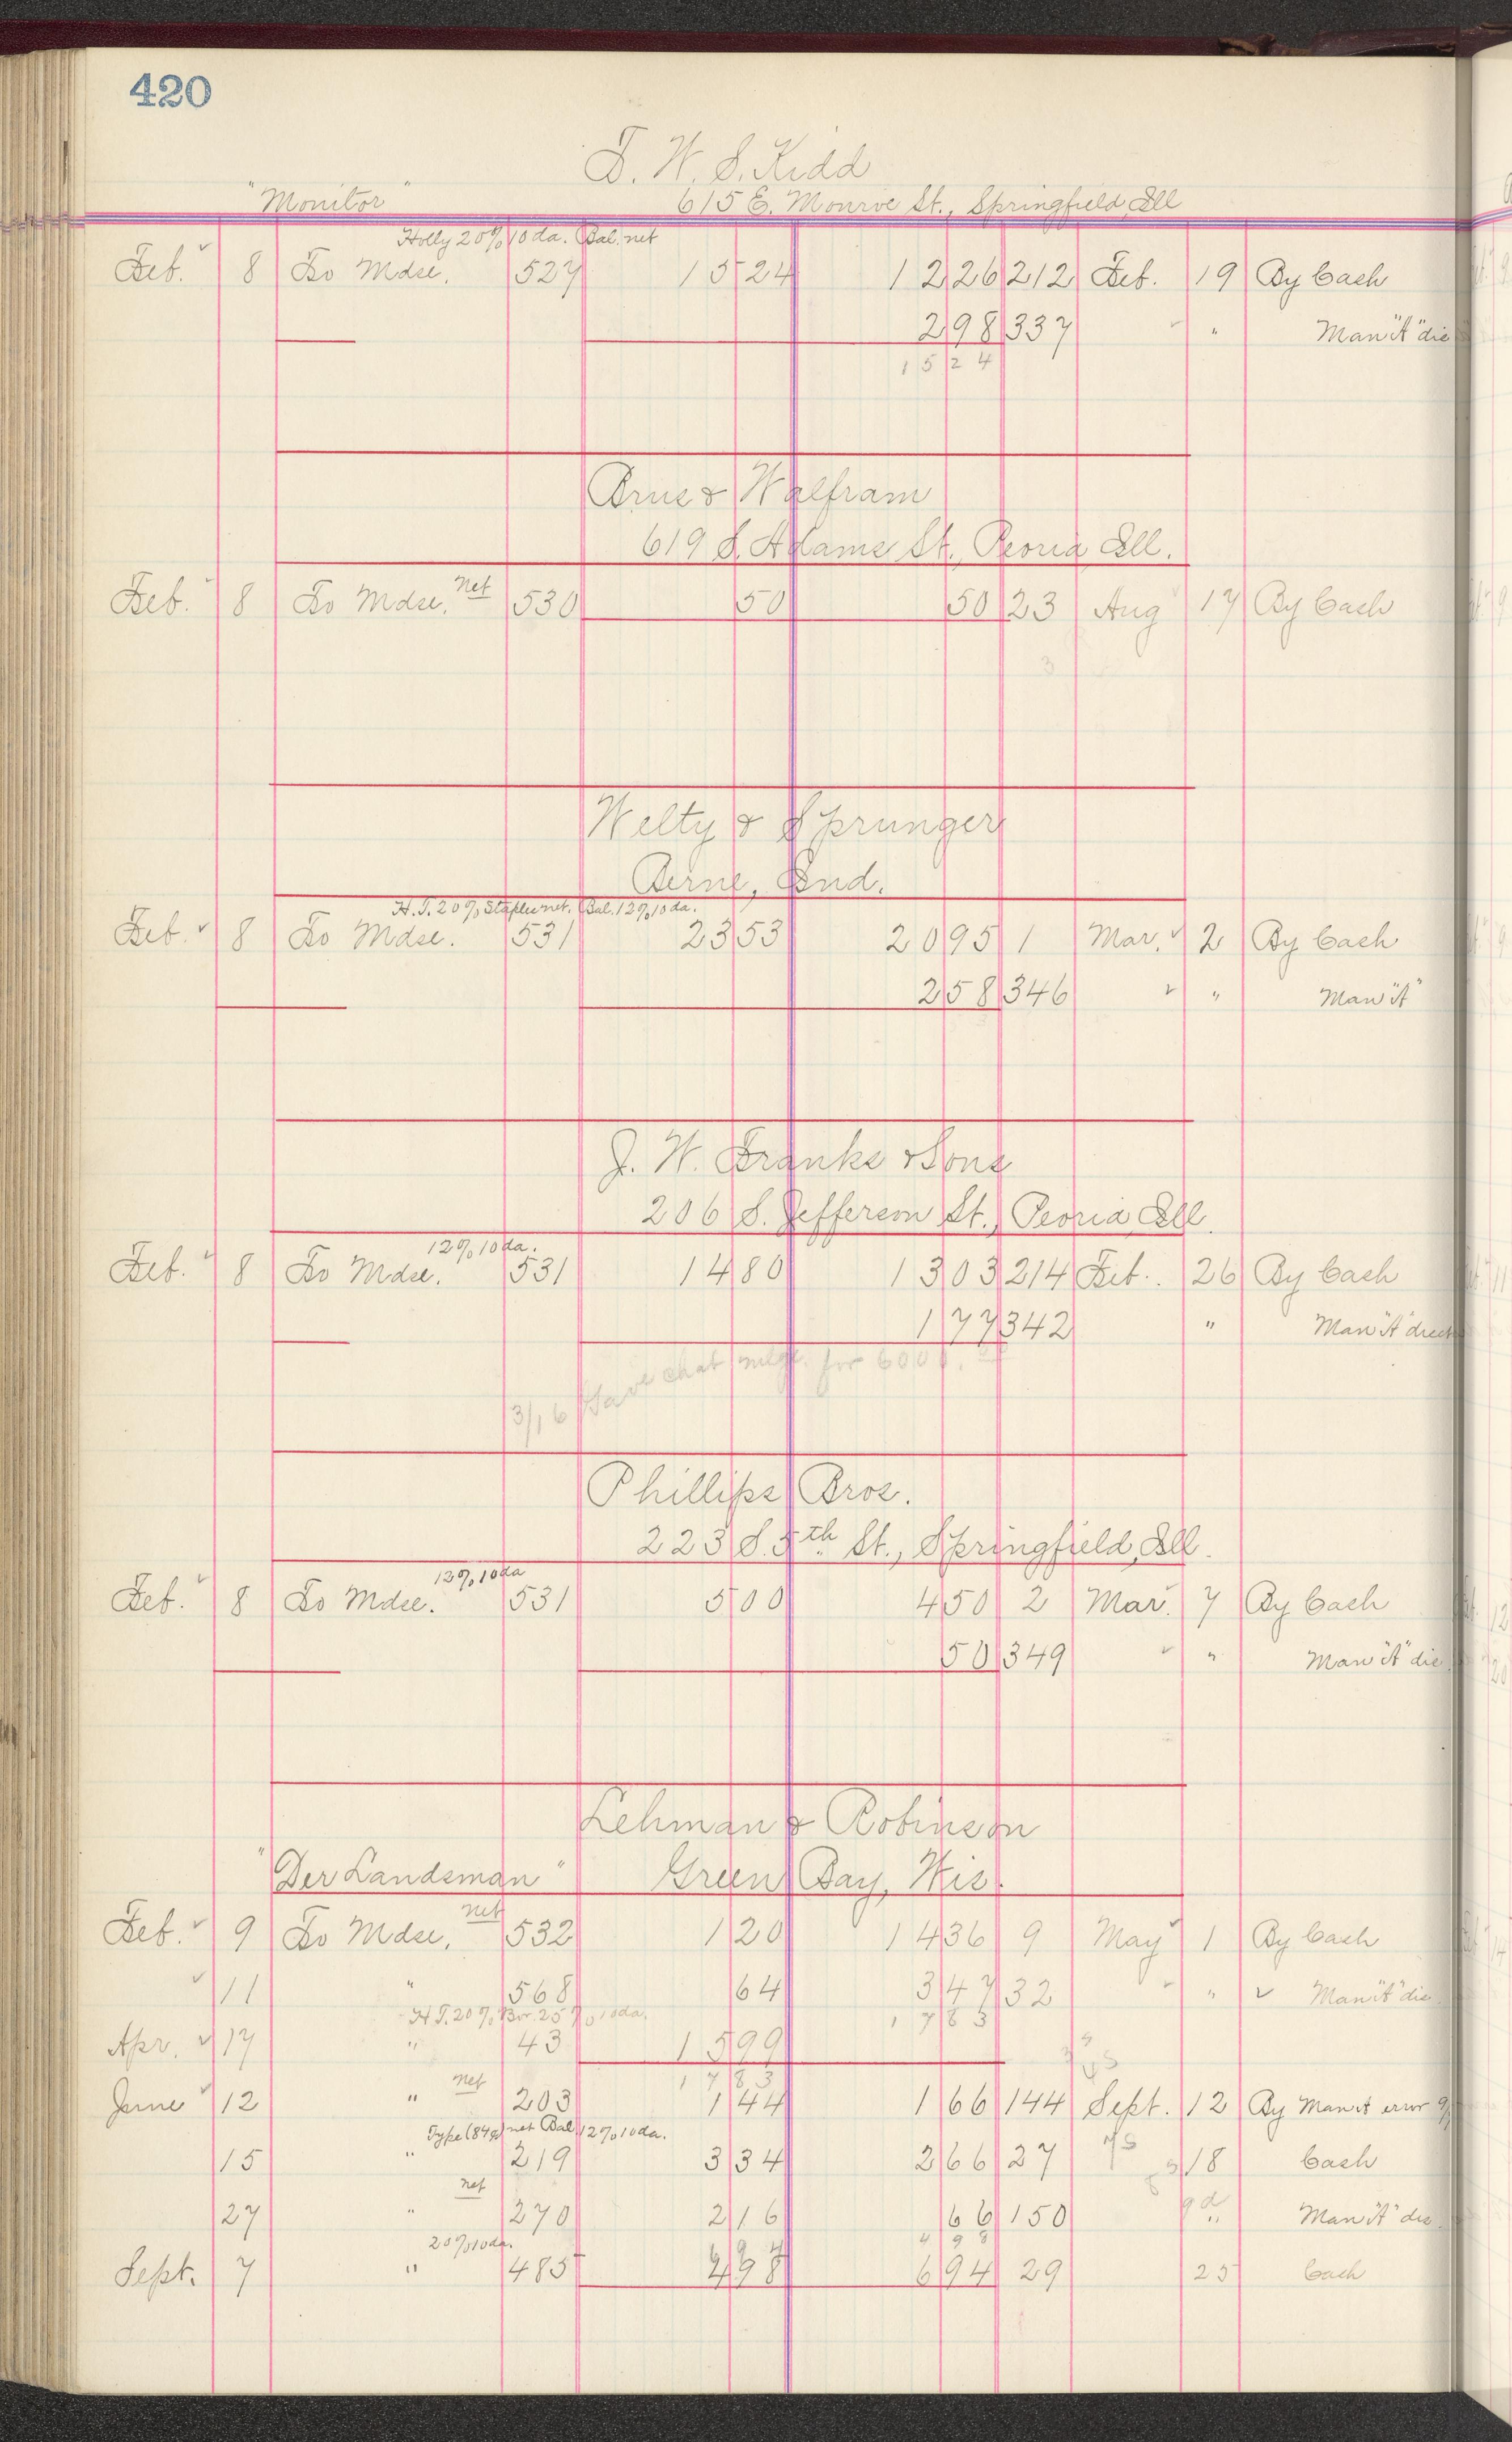 420
T. W. S. Kidd
"Monitor" 615 E. Monroe St., Springfield Ill
Holly 20% 10 da. Bal. net
Feb. 8 To Mdse. 527 15 24 12 26 212 Feb. 19 By Cash
2 98 337 " Man "A" die
15 24
Brus & Walfram
619 S. Adams St., Peoria Ill.
Feb. 8 To Mdse. net 530 50 50 23 Aug 17 By Cash
3
Welty & Sprunger
Berne, Ind.
H.T. 20% Staples net. Bal. 12% 10 da.
Feb. 8 To Mdse. 531 23 53 20 95 1 Mar. 2 By Cash
2 58 346 " Man "A"
J. W. Franks & Sons
206 S. Jefferson St., Peoria Ill.
12% 10 da.
Feb. 8 To Mdse. 531 14 80 13 03 214 Feb. 26 By Cash
1 77 342 " Man "A" direct
3/16 Have chat for 6000.
Phillips Bros.
223 S. 5th St., Springfield, Ill.
12% 10 da
Feb. 8 To Mdse. 531 5 00 4 50 2 Mar. 7 By Cash
50 349 " Man "A" die
Lehman & Robinson
"Der Landsman" Green Bay, Wis.
Feb. 9 To Mdse. net 532 1 20 14 36 9 May 1 By Cash
11 " 568 64 3 47 32 " Man "A" die
H.T. 20% Bor. 25% 10 da. 17 83
Apr. 17 " 43 15 99
17 83
June 12 " net 203 1 44 1 66 144 Sept. 12 By Man A error
Type (84¢) net Bal 12% 10 da.
15 " 219 3 34 2 66 27 18 Cash
27 " net 270 2 16 66 150 " Man "A" die
20% 10 da. 4 98
Sept. 7 " 485 6 94 29 25 Cash